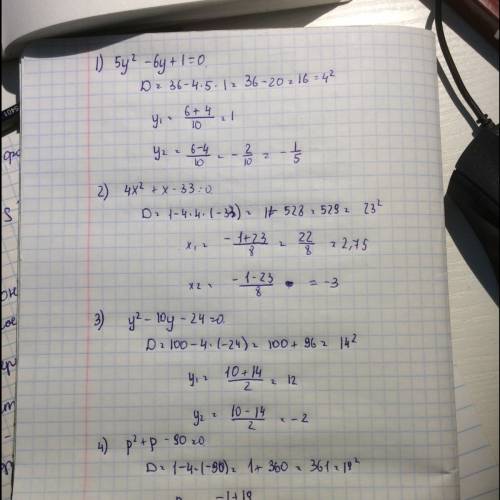 1) 5y² - 6y + 1 = 0
D = 36 - 4·5·1 = 36 - 20 = 16 = 4²
y₁ = (6+4)/10 = 1
y₂ = (6-4)/10 = - 2/10 = - 1/5
2) 4x² + x - 33 = 0
D = 1 - 4·4·(-33) = 1+ 528 = 529 = 23²
x₁ = (-1+23)/8 = 22/8 = 2,75
x₂ = (-1-23)/8 = -3
3) y² - 10y - 24 = 0
D = 100 - 4·(-24) = 100 + 96 = 14²
y₁ = (10+14)/2 = 12
y₂ = (10-14)/2 = -2
4) p² + p - 90 = 0
D = 1 - 4·(-90) = 1 + 360 = 361 = 19²
-1+19